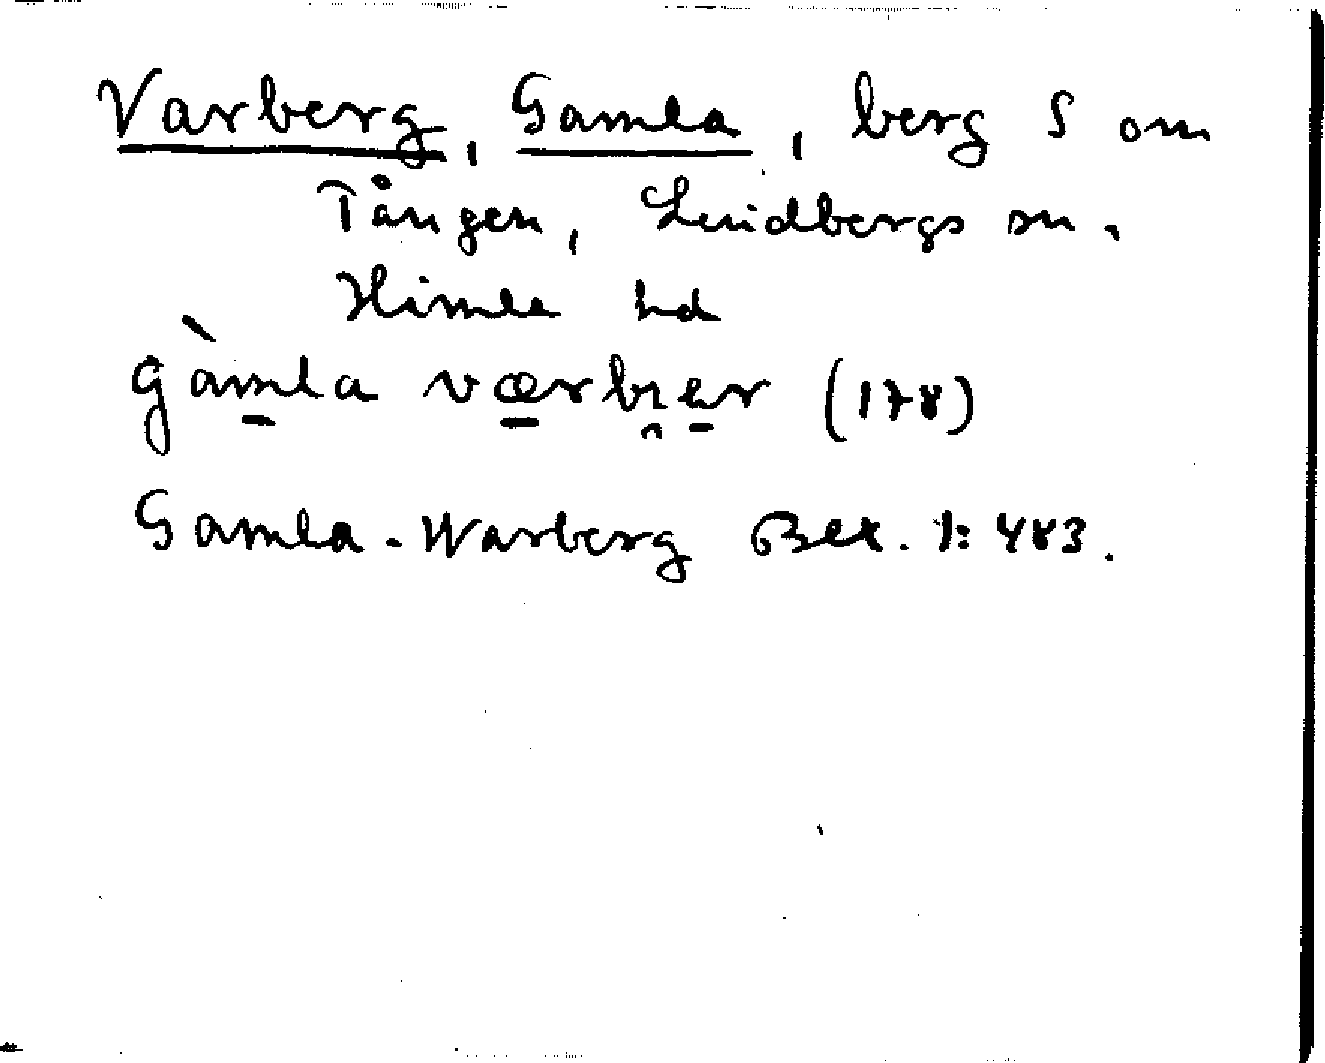 Varberg, Gamla, berg S om
Tången, Lindbergs sn.
Himle hd
gàm̱la væ̱rbi̯e̱r (178)
Gamla-Warberg Bex. 1: 483.